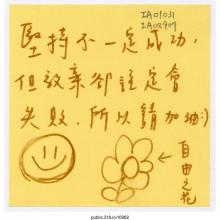 IA01031
IA08909
堅持不一定成功，
但放棄卻註定會
失敗，所以請加油:)
自由之花
public.318.io/10962